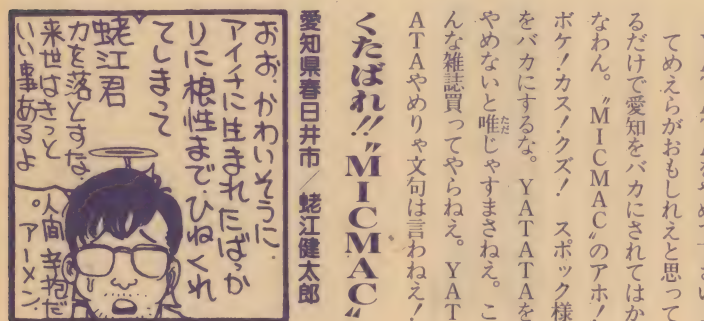 てめえらがおもしれえと思って
るだけで愛知をバカにされてはか
なわん。〝MICMAC〟のアホ!
ボケ!カス!クズ! スポック様
をバカにするな。YATATAを
やめないと唯じゃすまさねえ。こ
ただ
んな雑誌買ってやらねえ。YAT
ATAやめりゃ文句は言わねえ!
くたばれ!!〝MICMAC〟
愛知県春日井市/蛯江健太郎
おお、かわいそうに.
アイチに生まれたばっか
りに根性までひねくれ
てしまって
蛯江君
力を落とすな
来世はきっと
いい事あるよ
人間辛抱だ
。アーメン.